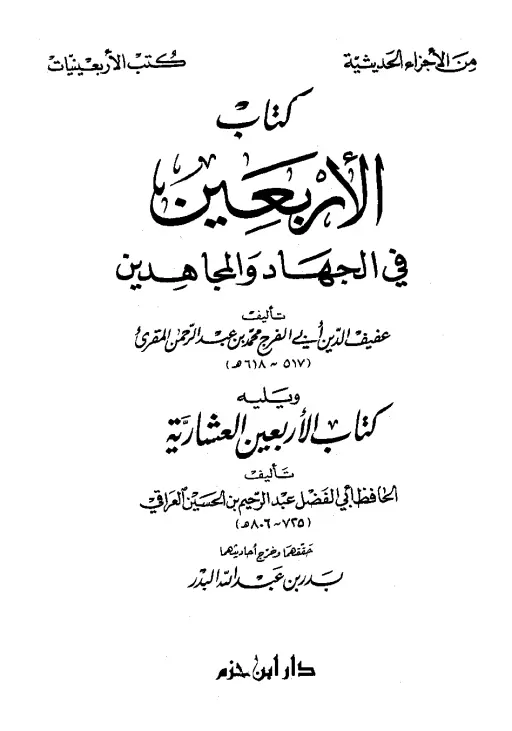 مِنَ الأجزاء الحديثيّة
كُتب الأربعينيّات
كتاب
الأربَعِين
في الجهاد والمجاهدين
تأليف
عفيف الدين أبي الفرج محمد بن عبد الرحمن المقرئ
(٥١٧ ~ ٦١٨ هـ)
ويليه
كتاب الأربعين العشارية
تأليف
الحافظ أبي الفضل عبد الرحيم بن الحسين العراقي
(٧٢٥ ~ ٨٠٦ هـ)
حققهما وخرج أحاديثهما
بدر بن عبد الله البدر
دار ابن حزم